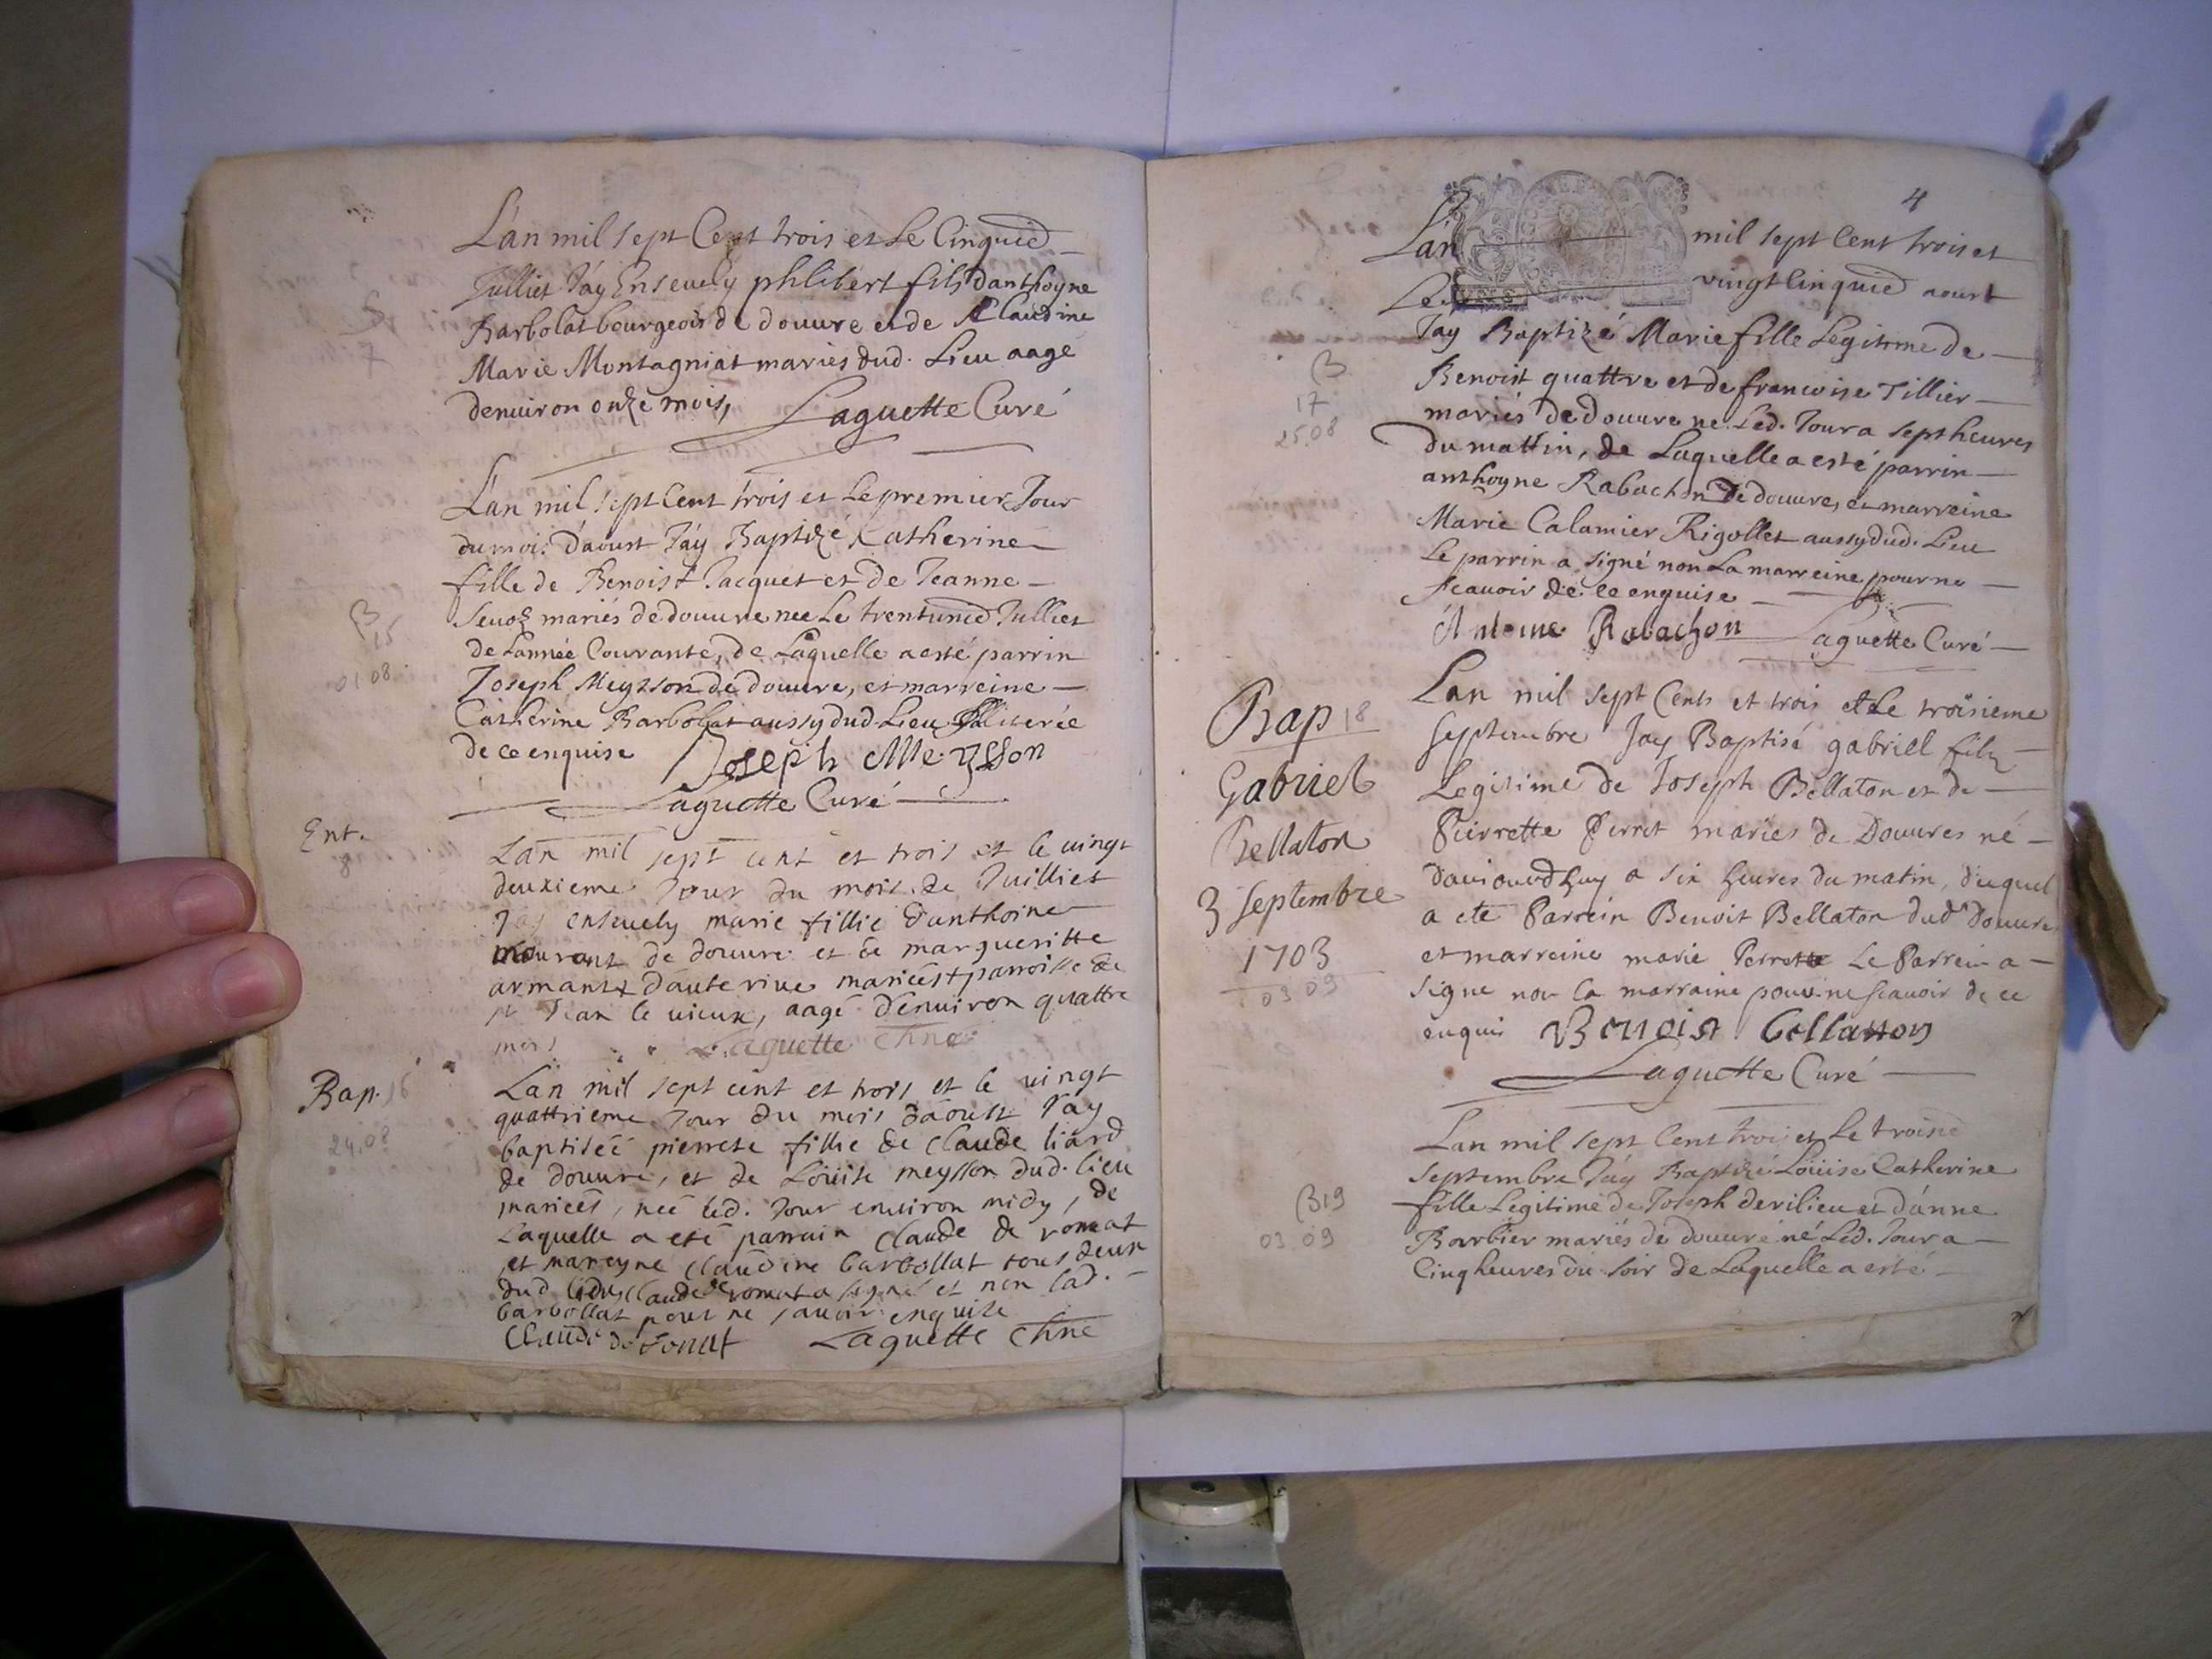 L'an mil sept Cent trois et Le Cinquie
Julliet J'ay Ensevely philibert fils d'anthoyne
Barbolat bourgeois de douure et de Claudine
Marie Montagniat mariés dud. Lieu aagé
denuiron onze mois, Laguette Curé
S
7
L'an mil sept Cent trois et Le premier Jour
du mois d'aoust J'ay Baptizé Catherine
fille de Benoist Jacquet et de Jeanne
mariés de douure nee Le trentunie Julliet
de L'année Courante, de Laquelle a esté parrin
Joseph Meysson de douure, et marreine
Catherine Barbollat aussy dud. Lieu Illiterée
de ce enquise Joseph Meysson
Laguette Curé
B
15
01 08
Ent.
8
Lan mil sept cent et trois et le vingt
deuxieme Jour du mois de Juilliet
J'ay enseuely marie fillie d'anthoine
mourant de douure et de margueritte
armant d'auterive mariées parroisse de
st Jean le vieux, aagé d'enuiron quattre
mois Laguette
Bap. 16
24.08
Lan mil sept cent et trois et le vingt
quattrieme Jour du mois d'aoust J'ay
baptiséé pierrete fillie de Claude liard
de douure, et de Louise meysson dud. lieu
mariées, neé led. Jour enuiron midy, de
Laquelle a eté parrain Claude de romat
et mareyne Claudine barbollat tous deux
dud lieu, Claude de romat a signé et non lad.
barbollat pour ne sauoir enquise
Claude de romat Laguette
4
L'an mil sept Cent trois et
Le vingt Cinquie aoust
J'ay Baptizé Marie fille Legitime de
Benoist quattre et de francoise Tillier
mariés de douure ne Led. Jour a sept heures
du mattin, de Laquelle a esté parrin
anthoyne Rabachon de douure, et marreine
Marie Calamier Rigollet aussy dud. Lieu
Le parrin a signé non La marreine pour ne
scauoir de ce enquise
Antoine Rabachon Laguette Curé
B
17
25.08
Bap 18
Gabriel
Bellaton
3 Septembre
1703
03 09
Lan mil sept Cents et trois et Le troisieme
Septembre Jay Baptisé gabriel fils
Legitime de Joseph Bellaton et de
Pierrette Perret mariés de Douures né
d'auiourdhuy a six heures du matin, duquel
a eté Parrein Benoit Bellaton dud Douure
et marreine marie Perret Le Parrein a
signe non la marraine pour ne scauoir de ce
enquis Benoist bellaton
Laguette Curé
B 19
03 09
Lan mil sept Cent trois et Le troisie
Septembre J'ay Baptizé Loüise Catherine
fille Legitime de Joseph derilieu et d'anne
Barbier mariés de douure né Led. Jour a
Cinq heures du soir de Laquelle a esté